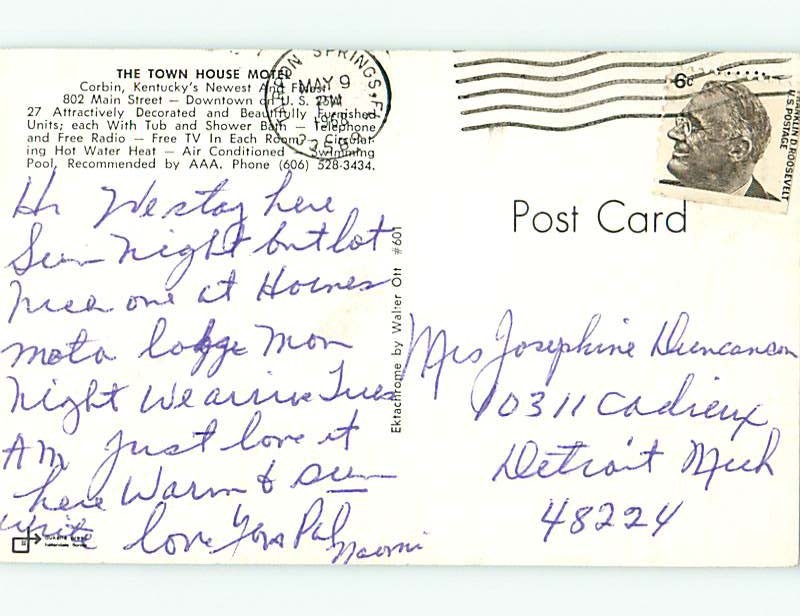 THE TOWN HOUSE MOTEL
Corbin, Kentucky's Newest And Finest
802 Main Street — Downtown on U. S. 25W
27 Attractively Decorated and Beautifully Furnished
Units; each With Tub and Shower Bath — Telephone
and Free Radio — Free TV In Each Room — Circulat-
ing Hot Water Heat — Air Conditioned — Swimming
Pool. Recommended by AAA. Phone (606) 528-3434.
Hi We stay here
Sun Night but lot
nicer one at Hornes
moto lodge Mon
night We arrive Tues
AM Just love it
here Warm & sun
write love Yora Pal
Naomi
Ektachrome by Walter Ott #601
SPRINGS, FL
MAY 9
PM
1968
33589
6¢
FRANKLIN D. ROOSEVELT
U.S. POSTAGE
Post Card
Mrs Josephine Duncanson
10311 Cadieux
Detroit Mich
48224